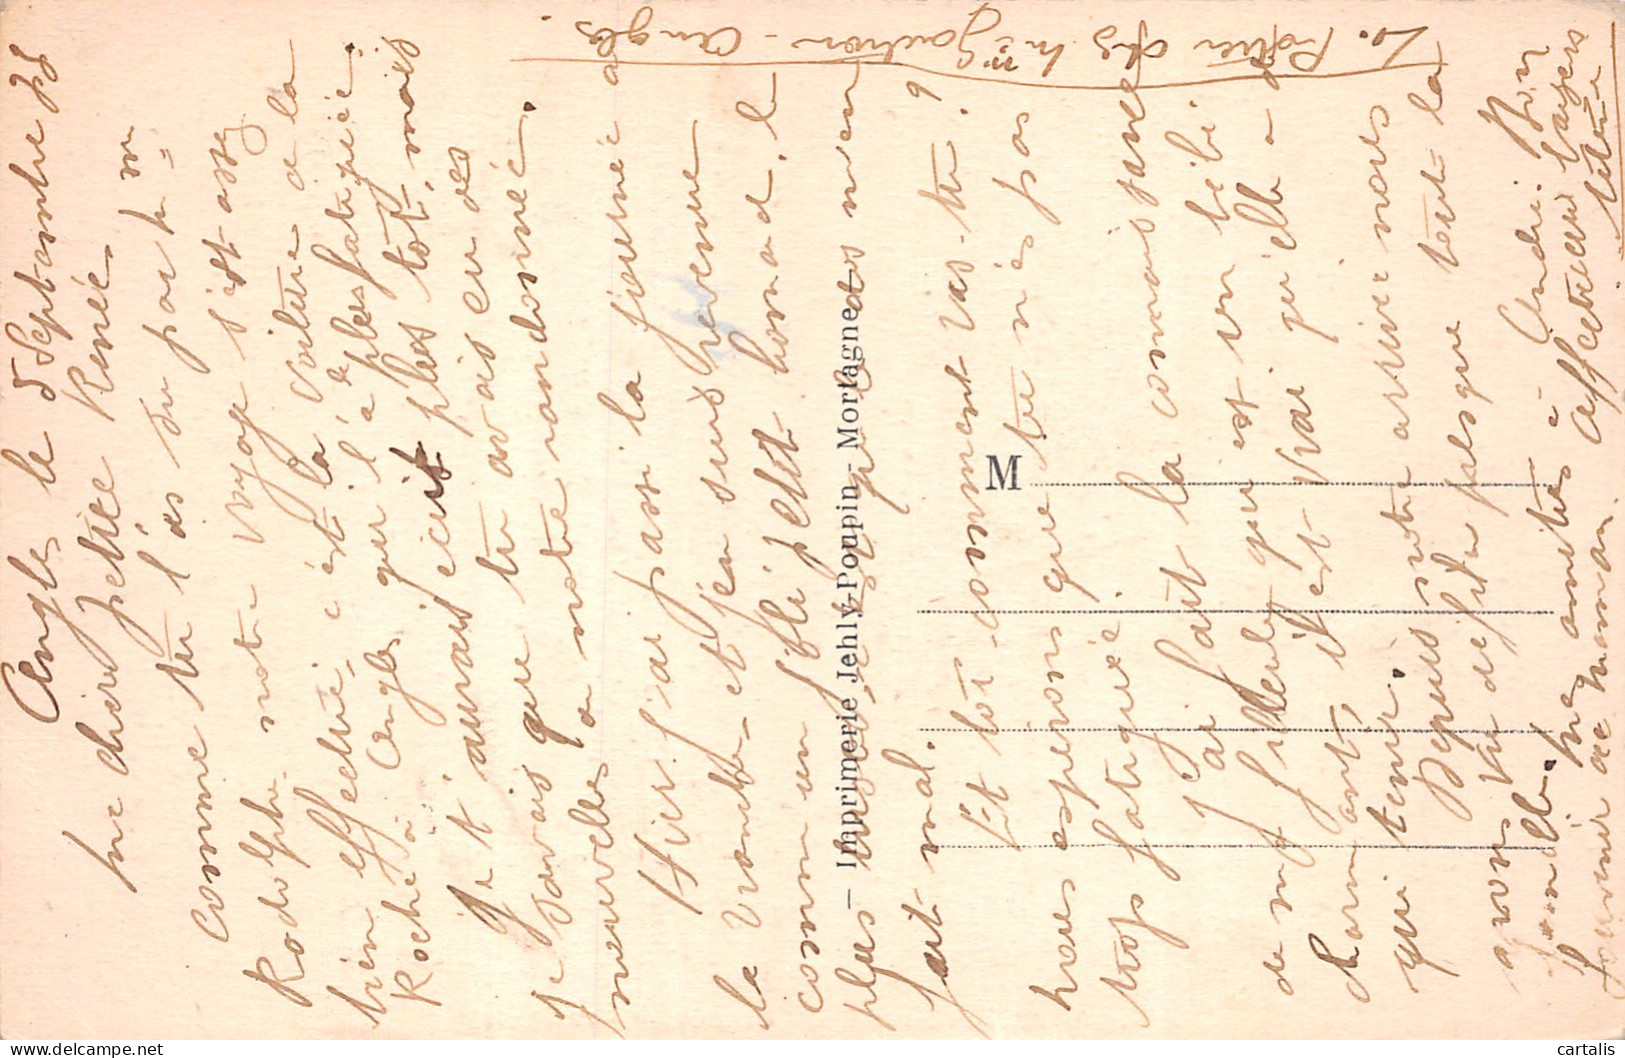 Angles le 5 Septembre 38
Ma chère petite Renée
Comme tu l'as su par m
Rodolphe notre voyage s'est assez
bien effectué, c'est la voiture de la
Roche à Angles qui l'a plus fatiguée.
Je t'aurais écrit plus tôt, mais
je savais que tu avais eu des
nouvelles a notre randonnée.
Hier j'ai passé la journée à
la et j'en suis revenue
comm un homard, le
plus
fait mal.
Et toi comment vas-tu ?
nous espérons que tu n'es pas
trop fatiguée.
J'ai fait la connaissance
de mf qui est un bébé
charmant, il est vrai qu'elle a
qui tenir.
Depuis notre arrivée nous
avons vu défiler presque toute la
famille. Mes amitiés à André. Bon
souvenir de maman. Affectueux baisers
Potier chez Mme Gautron - Angles
Imprimerie Jehly-Poupin - Mortagne
M
cartalis